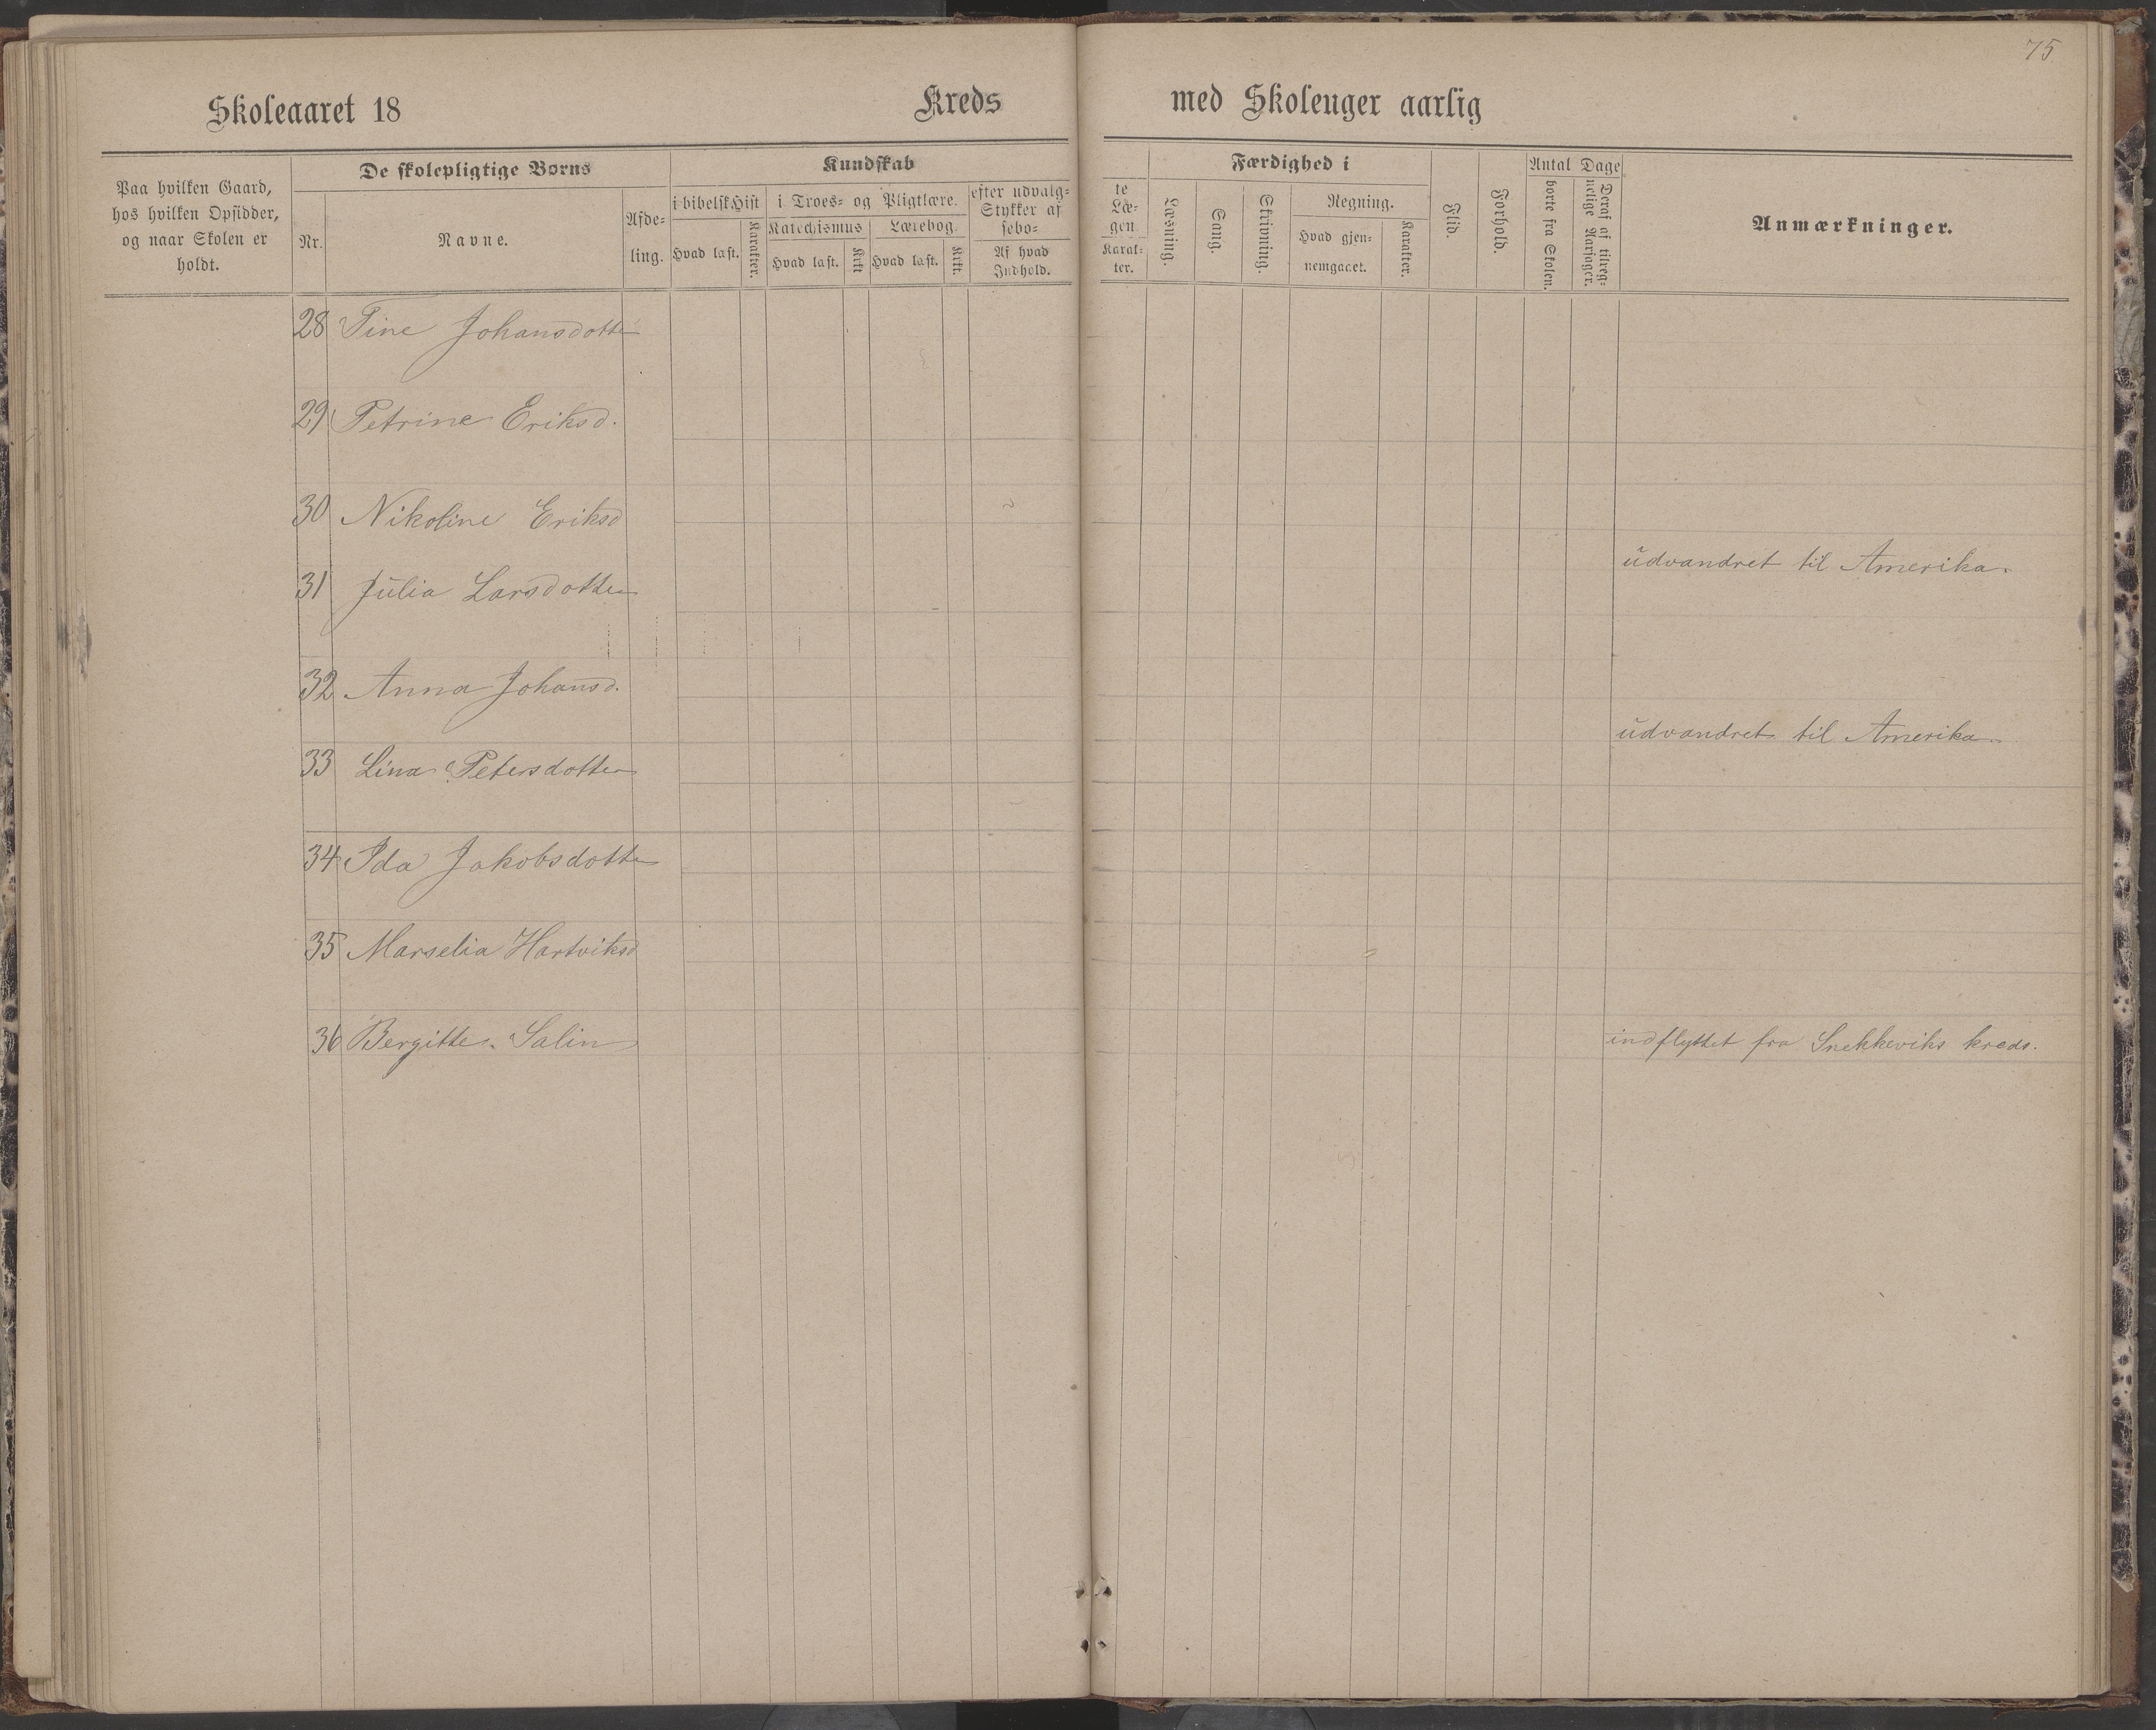 75
Skoleaaret 18 Kreds med Skoleuger aarlig
Paa hvilken Gaard, hos hvilken Opsidder, og naar Skolen er holdt.
De skolepligtige Børns
Nr.
Navne.
Afdeling.
Kundskab
i bibelsk Hist
Hvad læst.
Karakter.
i Troes- og Pligtlære.
Katechismus
Hvad læst.
Krkt
Lærebog.
Hvad læst.
Krkt.
efter udvalg-
Stykker af
sebo-
Af hvad
Indhold.
te
Læ-
gen
Karak-
ter.
Færdighed i
Læsning.
Sang.
Skrivning.
Regning.
Hvad gjen-
nemgaaet.
Karakter.
Flid.
Forhold.
Antal Dage
borte fra Skolen.
Deraf af tilreg-
nelige Aarsager.
Anmærkninger.
28 Tine Johansdotte
29 Petrine Eriksd.
30 Nikoline Eriksd
31 Julia Larsdotter udvandret til Amerika.
32 Anna Johansd.
33 Lina Petersdotter udvandret til Amerika.
34 Ida Jakobsdotte
35 Marselia Hartviksd
36 Bergitte Salin indflyttet fra Snekkeviks kreds.